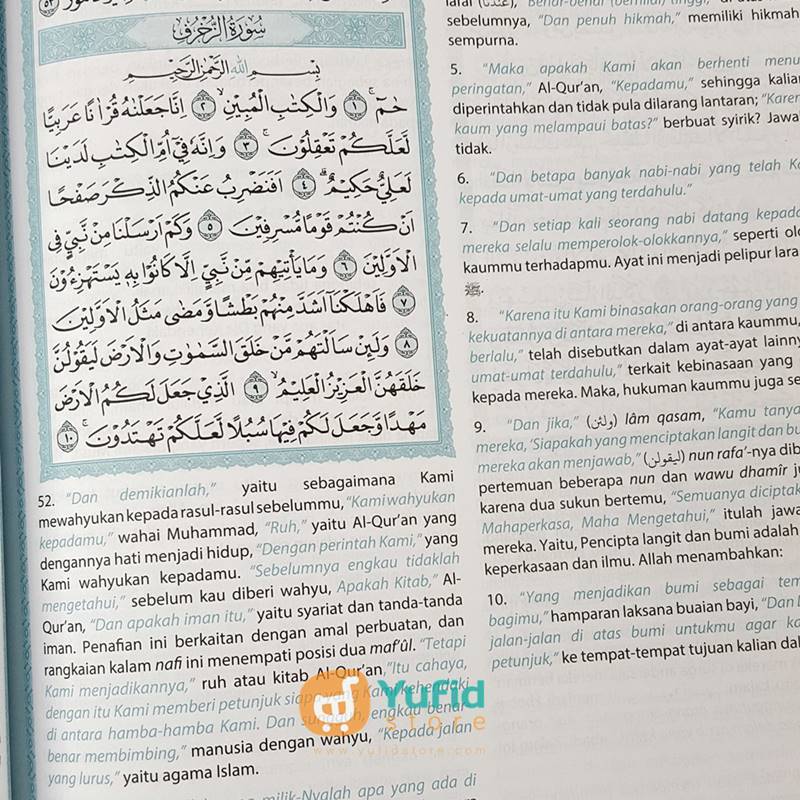 سُوْرَةُ الزُّخْرُفِ
بِسْــــمِ اللهِ الرَّحْمٰنِ الرَّحِيْـــمِ
حٰمۤ ۚ ﴿١﴾ وَالْكِتٰبِ الْمُبِيْنِ ۙ ﴿٢﴾ اِنَّا جَعَلْنٰهُ قُرْاٰنًا عَرَبِيًّا
لَّعَلَّكُمْ تَعْقِلُوْنَ ۚ ﴿٣﴾ وَاِنَّهٗ فِيْٓ اُمِّ الْكِتٰبِ لَدَيْنَا
لَعَلِيٌّ حَكِيْمٌ ۗ ﴿٤﴾ اَفَنَضْرِبُ عَنْكُمُ الذِّكْرَ صَفْحًا
اَنْ كُنْتُمْ قَوْمًا مُّسْرِفِيْنَ ﴿٥﴾ وَكَمْ اَرْسَلْنَا مِنْ نَّبِيٍّ فِى
الْاَوَّلِيْنَ ﴿٦﴾ وَمَا يَأْتِيْهِمْ مِّنْ نَّبِيٍّ اِلَّا كَانُوْا بِهٖ يَسْتَهْزِءُوْنَ
﴿٧﴾ فَاَهْلَكْنَآ اَشَدَّ مِنْهُمْ بَطْشًا وَّمَضٰى مَثَلُ الْاَوَّلِيْنَ
﴿٨﴾ وَلَىِٕنْ سَاَلْتَهُمْ مَّنْ خَلَقَ السَّمٰوٰتِ وَالْاَرْضَ لَيَقُوْلُنَّ
خَلَقَهُنَّ الْعَزِيْزُ الْعَلِيْمُ ۙ ﴿٩﴾ الَّذِيْ جَعَلَ لَكُمُ الْاَرْضَ
مَهْدًا وَّجَعَلَ لَكُمْ فِيْهَا سُبُلًا لَّعَلَّكُمْ تَهْتَدُوْنَ ۚ ﴿١٠﴾
52. "Dan demikianlah," yaitu sebagaimana Kami
mewahyukan kepada rasul-rasul sebelummu, "Kami wahyukan
kepadamu," wahai Muhammad, "Ruh," yaitu Al-Qur'an yang
dengannya hati menjadi hidup, "Dengan perintah Kami," yang
Kami wahyukan kepadamu. "Sebelumnya engkau tidaklah
mengetahui," sebelum kau diberi wahyu, Apakah Kitab," Al-
Qur'an, "Dan apakah iman itu," yaitu syariat dan tanda-tanda
iman. Penafian ini berkaitan dengan amal perbuatan, dan
rangkaian kalam nafi ini menempati posisi dua maf'ûl. "Tetapi
Kami menjadikannya," ruh atau kitab Al-Qur'an, "Itu cahaya,
dengan itu Kami memberi petunjuk siapa yang Kami kehendaki
di antara hamba-hamba Kami. Dan sungguh, engkau benar-
benar membimbing," manusia dengan wahyu, "Kepada jalan
yang lurus," yaitu agama Islam.
milik-Nyalah apa yang ada di
sebelumnya, "Dan penuh hikmah," memiliki hikmah
sempurna.
5. "Maka apakah Kami akan berhenti menu
peringatan," Al-Qur'an, "Kepadamu," sehingga kalia
diperintahkan dan tidak pula dilarang lantaran; "Karen
kaum yang melampaui batas?" berbuat syirik? Jawa
tidak.
6. "Dan betapa banyak nabi-nabi yang telah K
kepada umat-umat yang terdahulu."
7. "Dan setiap kali seorang nabi datang kepada
mereka selalu memperolok-olokkannya," seperti olo
kaummu terhadapmu. Ayat ini menjadi pelipur lara
ﷺ.
8. "Karena itu Kami binasakan orang-orang yang
kekuatannya di antara mereka," di antara kaummu,
berlalu," telah disebutkan dalam ayat-ayat lainny
umat-umat terdahulu," terkait kebinasaan yang
kepada mereka. Maka, hukuman kaummu juga se
9. "Dan jika," (ولئن) lâm qasam, "Kamu tanya
mereka, 'Siapakah yang menciptakan langit dan bu
mereka akan menjawab," (ليقولن) nun rafa'-nya dib
pertemuan beberapa nun dan wawu dhamîr ju
karena dua sukun bertemu, "Semuanya diciptak
Mahaperkasa, Maha Mengetahui," itulah jawa
mereka. Yaitu, Pencipta langit dan bumi adalah
keperkasaan dan ilmu. Allah menambahkan:
10. "Yang menjadikan bumi sebagai tem
bagimu," hamparan laksana buaian bayi, "Dan
jalan-jalan di atas bumi untukmu agar ka
petunjuk," ke tempat-tempat tujuan kalian dal
Yufid
store
www.yufidstore.com